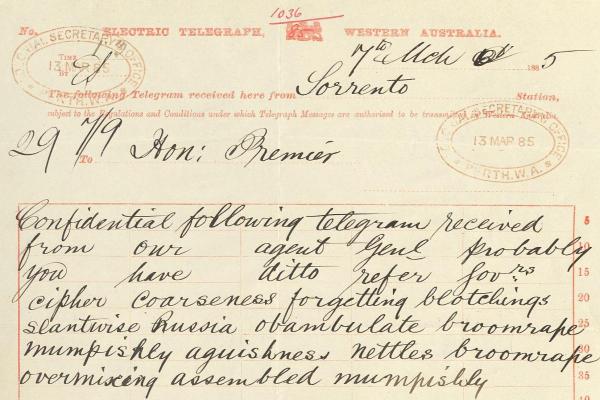 1036
No. ELECTRIC TELEGRAPH, WESTERN AUSTRALIA.
COLONIAL SECRETARY'S OFFICE
13 MAR 85
PERTH. W.A.
TIME
BY
7th Mch 1885
The following Telegram received here from Sorrento Station,
subject to the Regulations and Conditions under which Telegraph Messages are authorised to be transmitted in Western Australia.
COLONIAL SECRETARY'S OFFICE
13 MAR 85
PERTH. W.A.
29 7/9 To Hon: Premier
Confidential following telegram received 5
from our agent Genl probably 10
you have ditto refer Govrs 15
cipher coarseness forgetting blotchings 20
slantwise Russia obambulate broomrape 25
mumpishly aguishness nettles broomrape 30
overmixing assembled mumpishly 35